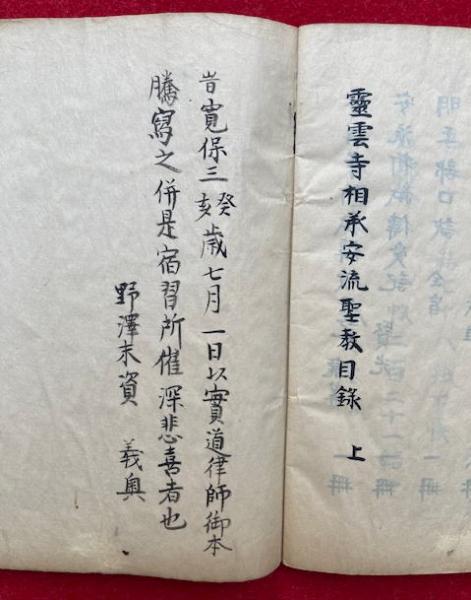 靈雲寺相承安流聖教目錄 上
旹寛保三癸亥歳七月一日以實道律師御本
謄寫之併是宿習所催深悲喜者也
野澤末資 義奥